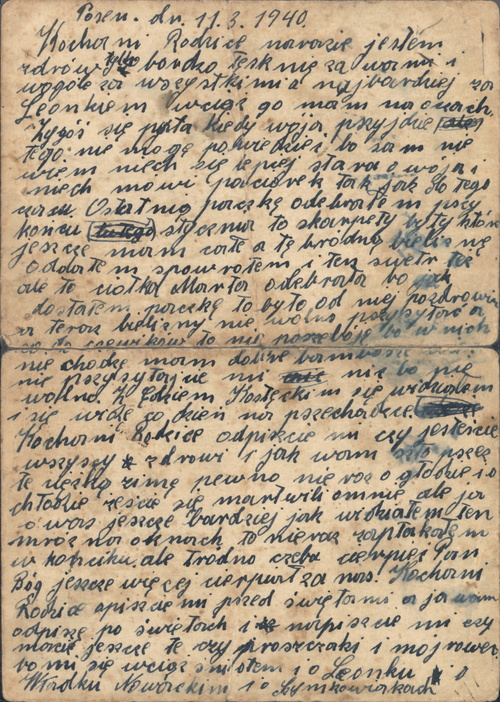 Posen. dn. 11.3.1940.
Kochani Rodzice narazie jestem
zdrów tylko bardzo tęsknię za wami i
wogóle za wszystkimi a najbardziej za
Leonkiem wciąż go mam na oczach
Zygoś się pyta kiedy woja przyjdzie
tego nie mogę powiedzieć bo sam nie
wiem niech się lepiej stara o woja i
niech mówi paciorek tak jak do tego
czasu. Ostatnią paczkę odebrałem przy
końcu stycznia to skarpety były które
jeszcze mam całe a tę brudną bieliznę
oddałem spowrotem i ten swetr też
ale to ciotka Marta odebrała bo jak
dostałem paczkę to było od niej pozdrowi
a teraz bielizny nie wolno przysyłać a
co do to nie potrzebuję bo w nich
nie chodzę mam dobre
nie przysyłajcie mi nic bo nie
wolno. Z Edkiem się widziałem
i się widzę co dzień na przechadzce
Kochani Rodzice odpiszcie mi czy jesteście
wszyscy zdrowi i jak wam szło przez
tę ciężką zimę pewno nie raz o głodzie i o
chłodzie żeście się martwili o mnie, ale ja
o was jeszcze bardziej jak widziałem ten
mróz na oknach to nieraz zapłakałem
w kąciku, ale trudno trzeba cierpieć Pan
Bóg jeszcze więcej cierpiał za nas. Kochani
Rodzice opiszcie mi przed świętami a ja wam
odpiszę po świętach i napiszcie mi czy
macie jeszcze te czy prosiaki i mój rower
bo mi się wciąż śni o tem i o Leonku i o
Władku i o Szymkowiakach